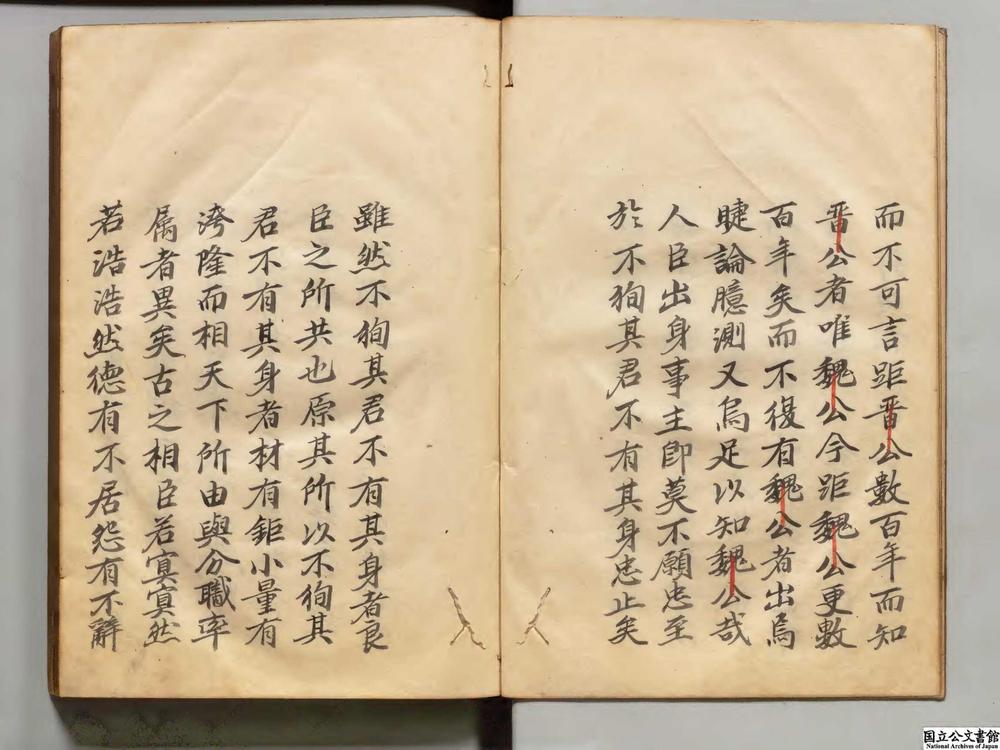 而不可言距晋公數百年而知
晋公者唯魏公今距魏公更數
百年矣而不復有魏公者出烏
睫論臆測又烏足以知魏公哉
人臣出身事主即莫不願忠至
於不狥其君不有其身忠止矣
雖然不狥其君不有其身者良
臣之所共也原其所以不狥其
君不有其身者材有鉅小量有
洿隆而相天下所由與分職率
属者異矣古之相臣若寞寞然
若浩浩然德有不居怨有不辭
国立公文書館
National Archives of Japan